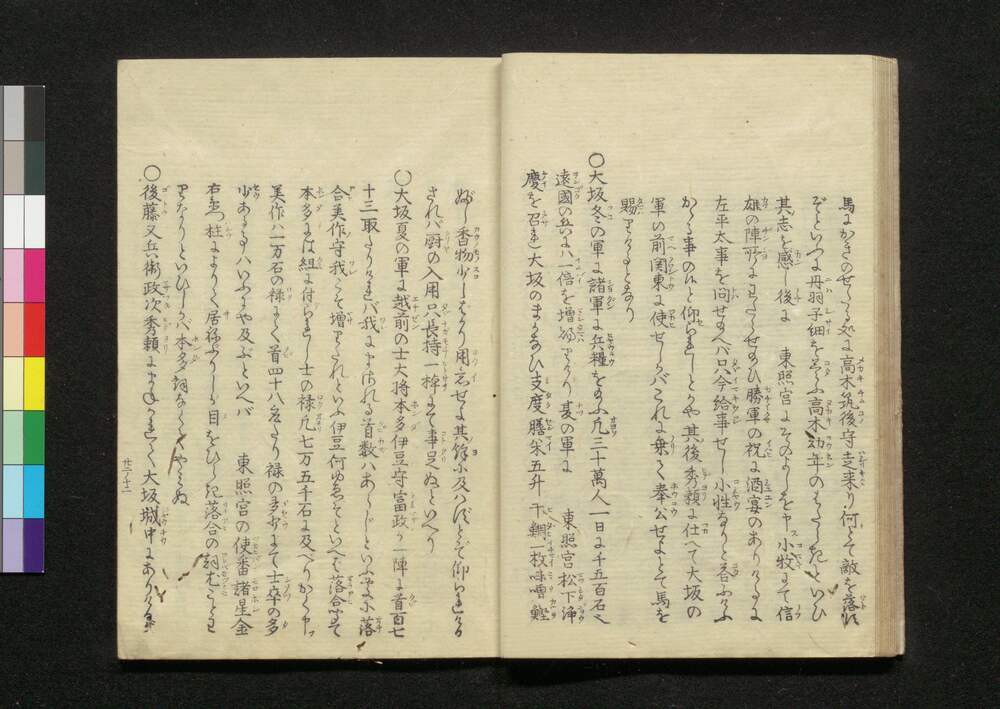 馬にかきのせらるゝ処に高木筑後守走来り何とて敵を落
といつは丹羽子細を云ふ高木幼年のはたらきといひ
其志を感し後に 東照宮にそのよしを申ス小牧にて信
雄の陣所にわたらせ給ひ勝軍の祝に酒宴のありけるに
左平太事を問せ給へバ只今給事せし小性なりと答ふ
かゝる事のんと仰られしとかや其後秀頼に仕へて大坂の
軍の前関東に使せしかバこれに乗て奉公せよとて馬を
賜りけるとなり
〇大坂冬の軍に諸軍に兵糧を給ふ凡三十萬人一日に千五百石
遠國の兵には一倍を増給りけり夏の軍に 東照宮松下浄
慶を召れ大坂のまかなひ支度膳米五升 干鯛一枚味噌鰹
ぶし香物少しばかり用意せよ其餘に及ハずとぞ仰られける
されバ厨の入用只長持一棹にて事足ぬといへり
〇大坂夏の軍に越前の士大将本多伊豆守富政が一陣に首百七
十三取たりけれバ我にまされる首数ハあらじといふに落
合美作守我こそ増りたれといふ伊豆何ゆゑぞといへば落合
本多には組に付られし士の禄凡七万五千石に及べりかく申ス
美作ハ一万石の禄にて首四十八名たり禄の多少にて士卒の多
少あるハいふにや及ぶといへバ 東照宮の使番諸星金
右衛門柱によりて居ねぶりしが目をひらき落合の詞尤ことわ
りなりといひしかバ本多詞なくてやみぬ
〇後藤又兵衛政次秀頼にまねかれて大坂城中にありける
廿三ノ十二